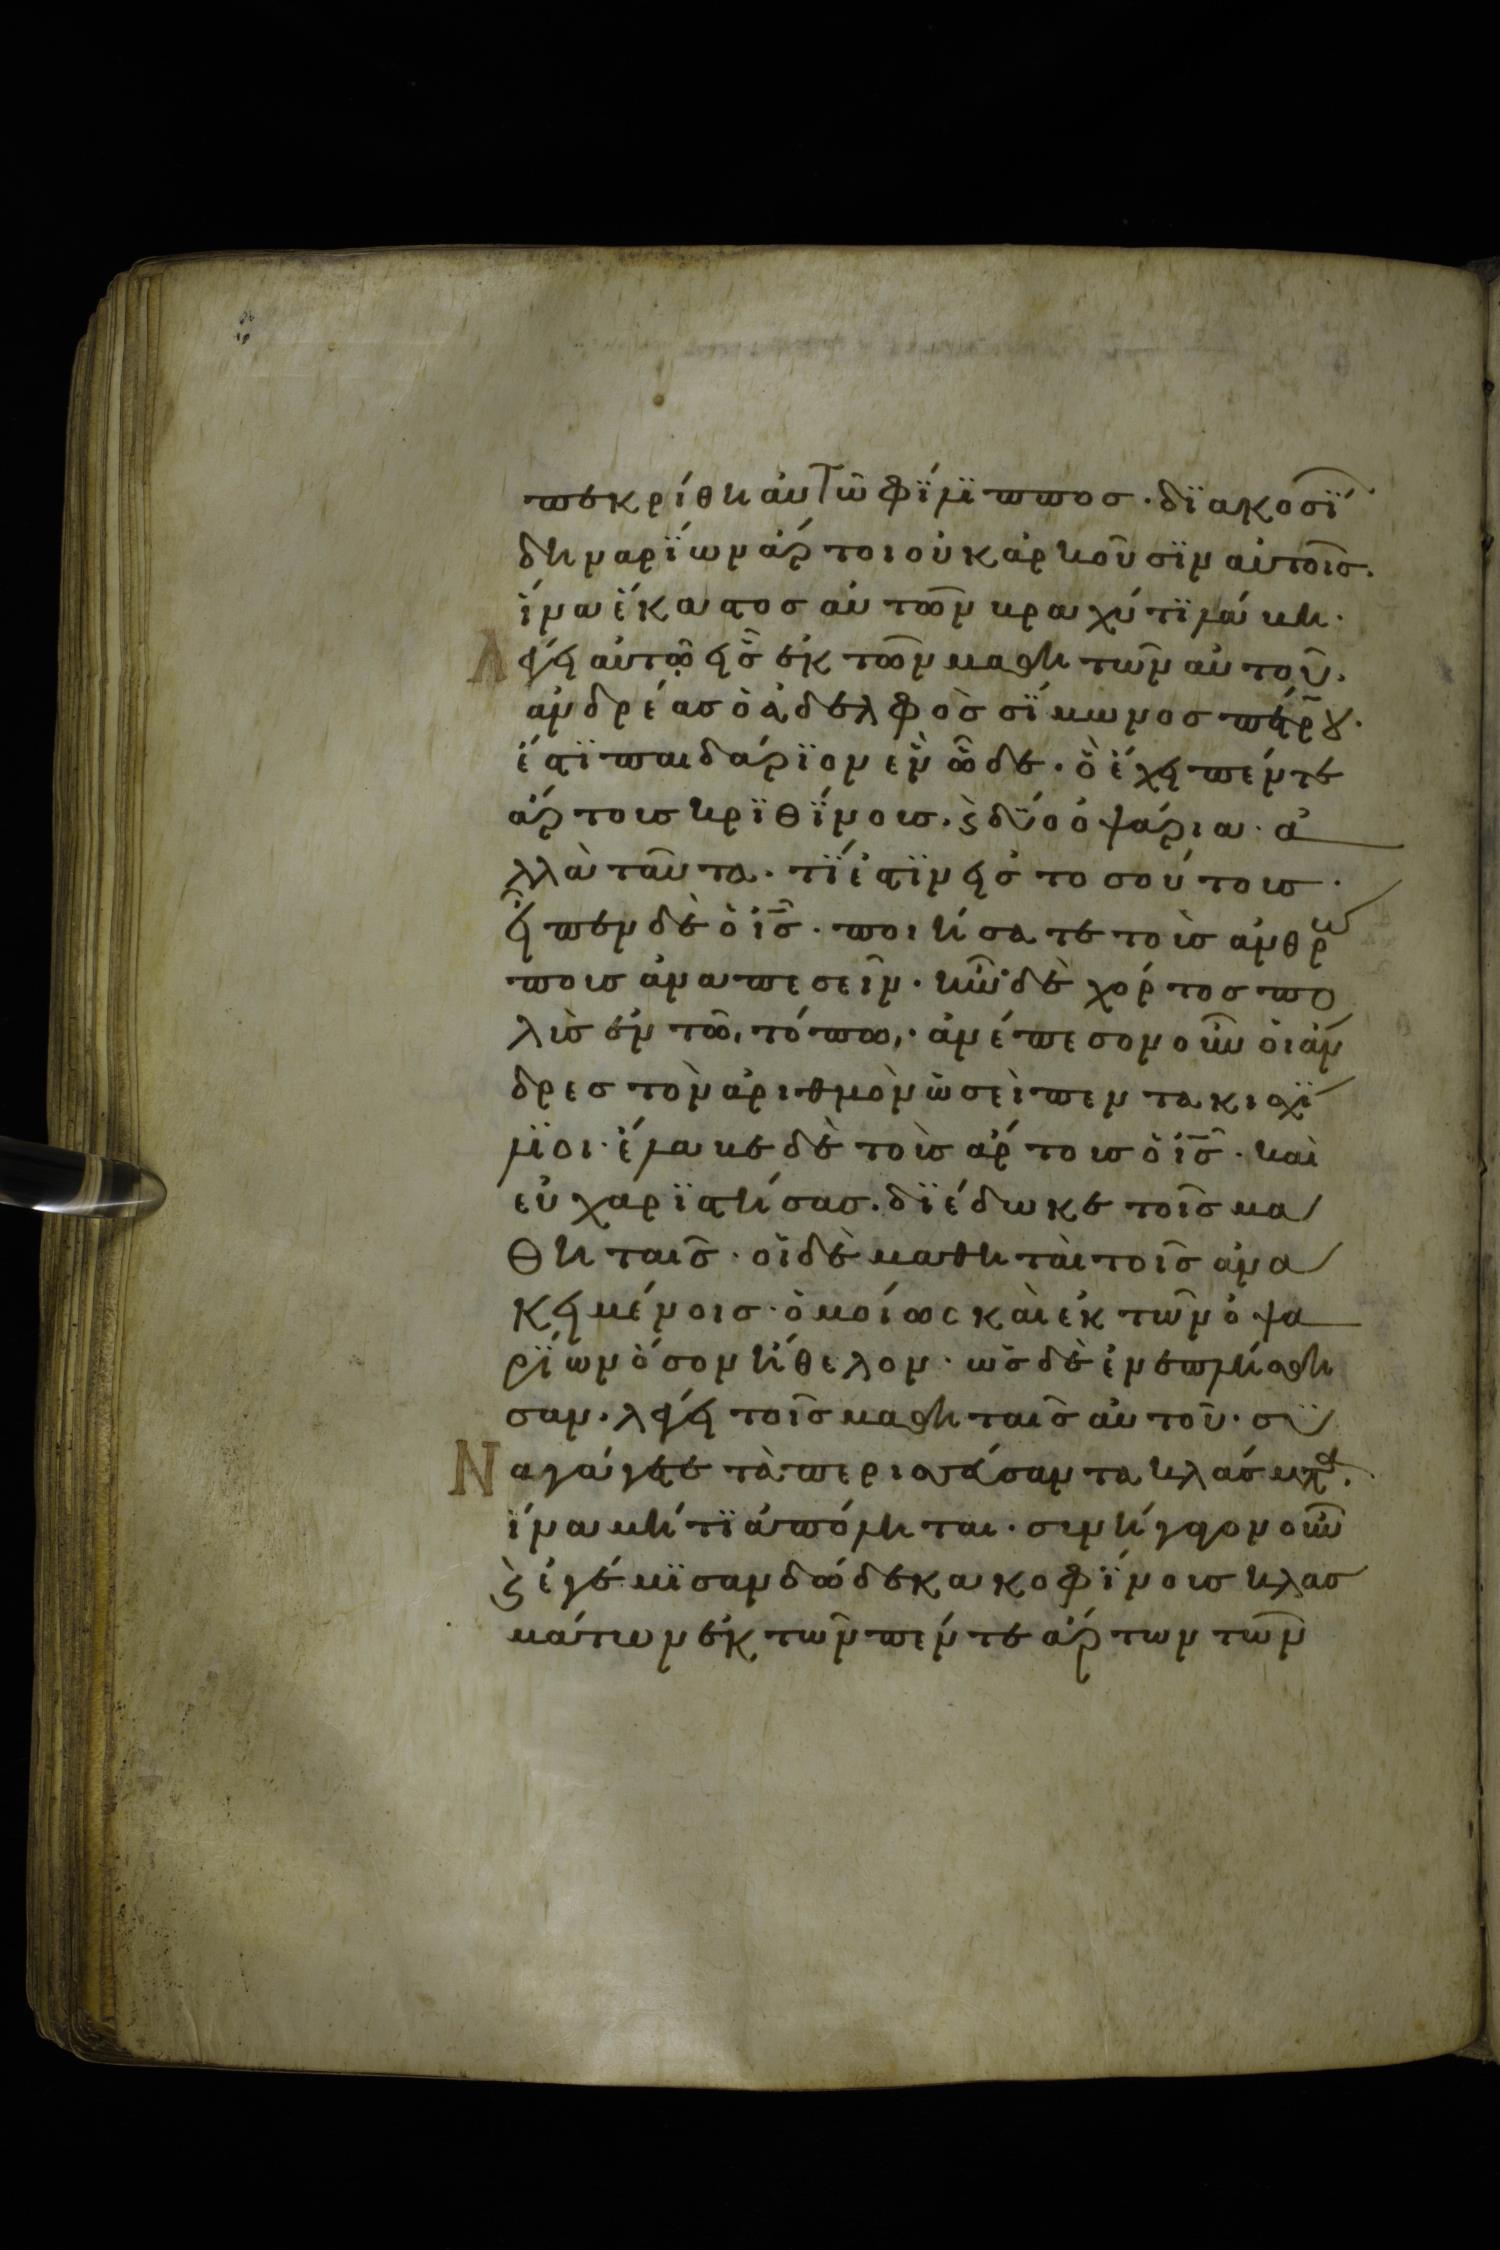 πεκρίθη αὐτῶ φίλϊππος· δϊακοσΐ
δηναρΐων άρτοι οὐκ ἀρκοῦσϊν αὐτοῖσ·
ἵνα ἕκαστοσ αὐτῶν βραχύ τϊ λάβη·
Λέγει αὐτῶ εἷσ ἐκ τῶν μαθητῶν αὐτοῦ·
ἀνδρέασ ὁ ἀδελφὸσ σίμωνοσ πέτρου·
ἔστϊ παιδάρϊον ἓν ὧδε· ὃ ἔχει πέντε
άρτουσ κρϊθΐνουσ· ϗ δύο ὀψάρια· ἀ
λλὰ ταῦτα· τΐ ἐστϊν εἰσ τοσούτουσ·
εἶπεν δὲ ὁ ἰσ· ποιήσατε τοὺσ ἀνθρώ
πουσ ἀναπεσεῖν· ἦν δὲ χόρτοσ πο
λὺσ ἐν τῶ τόπω· ἀνέπεσον οὖν οἱ ἄν
δρεσ τὸν ἀριθμὸν ὡσεὶ πεντακισχΐ
λϊοι· ἔλαβε δὲ τοὺσ άρτουσ ὁ ἰσ· καὶ
εὐχαρϊστήσασ· δϊέδωκε τοῖσ μα
θηταισ· οἱ δὲ μαθηταὶ τοῖσ ἀνα
κειμένοισ· ὁμοίως καὶ ἐκ τῶν ὀψα
ρΐων ὅσον ἤθελον· ὡσ δὲ ἐνεπλήσθη
σαν· λέγει τοῖσ μαθηταισ αὐτοῦ· συ
Ναγάγετε τὰ περισσεύσαντα κλάσματα·
ἵνα μή τϊ ἀπόληται· συνήγαγον οὖν
ϗ ἐγέμϊσαν δώδεκα κοφΐνουσ κλασ
μάτων ἐκ τῶν πέντε άρτων τῶν